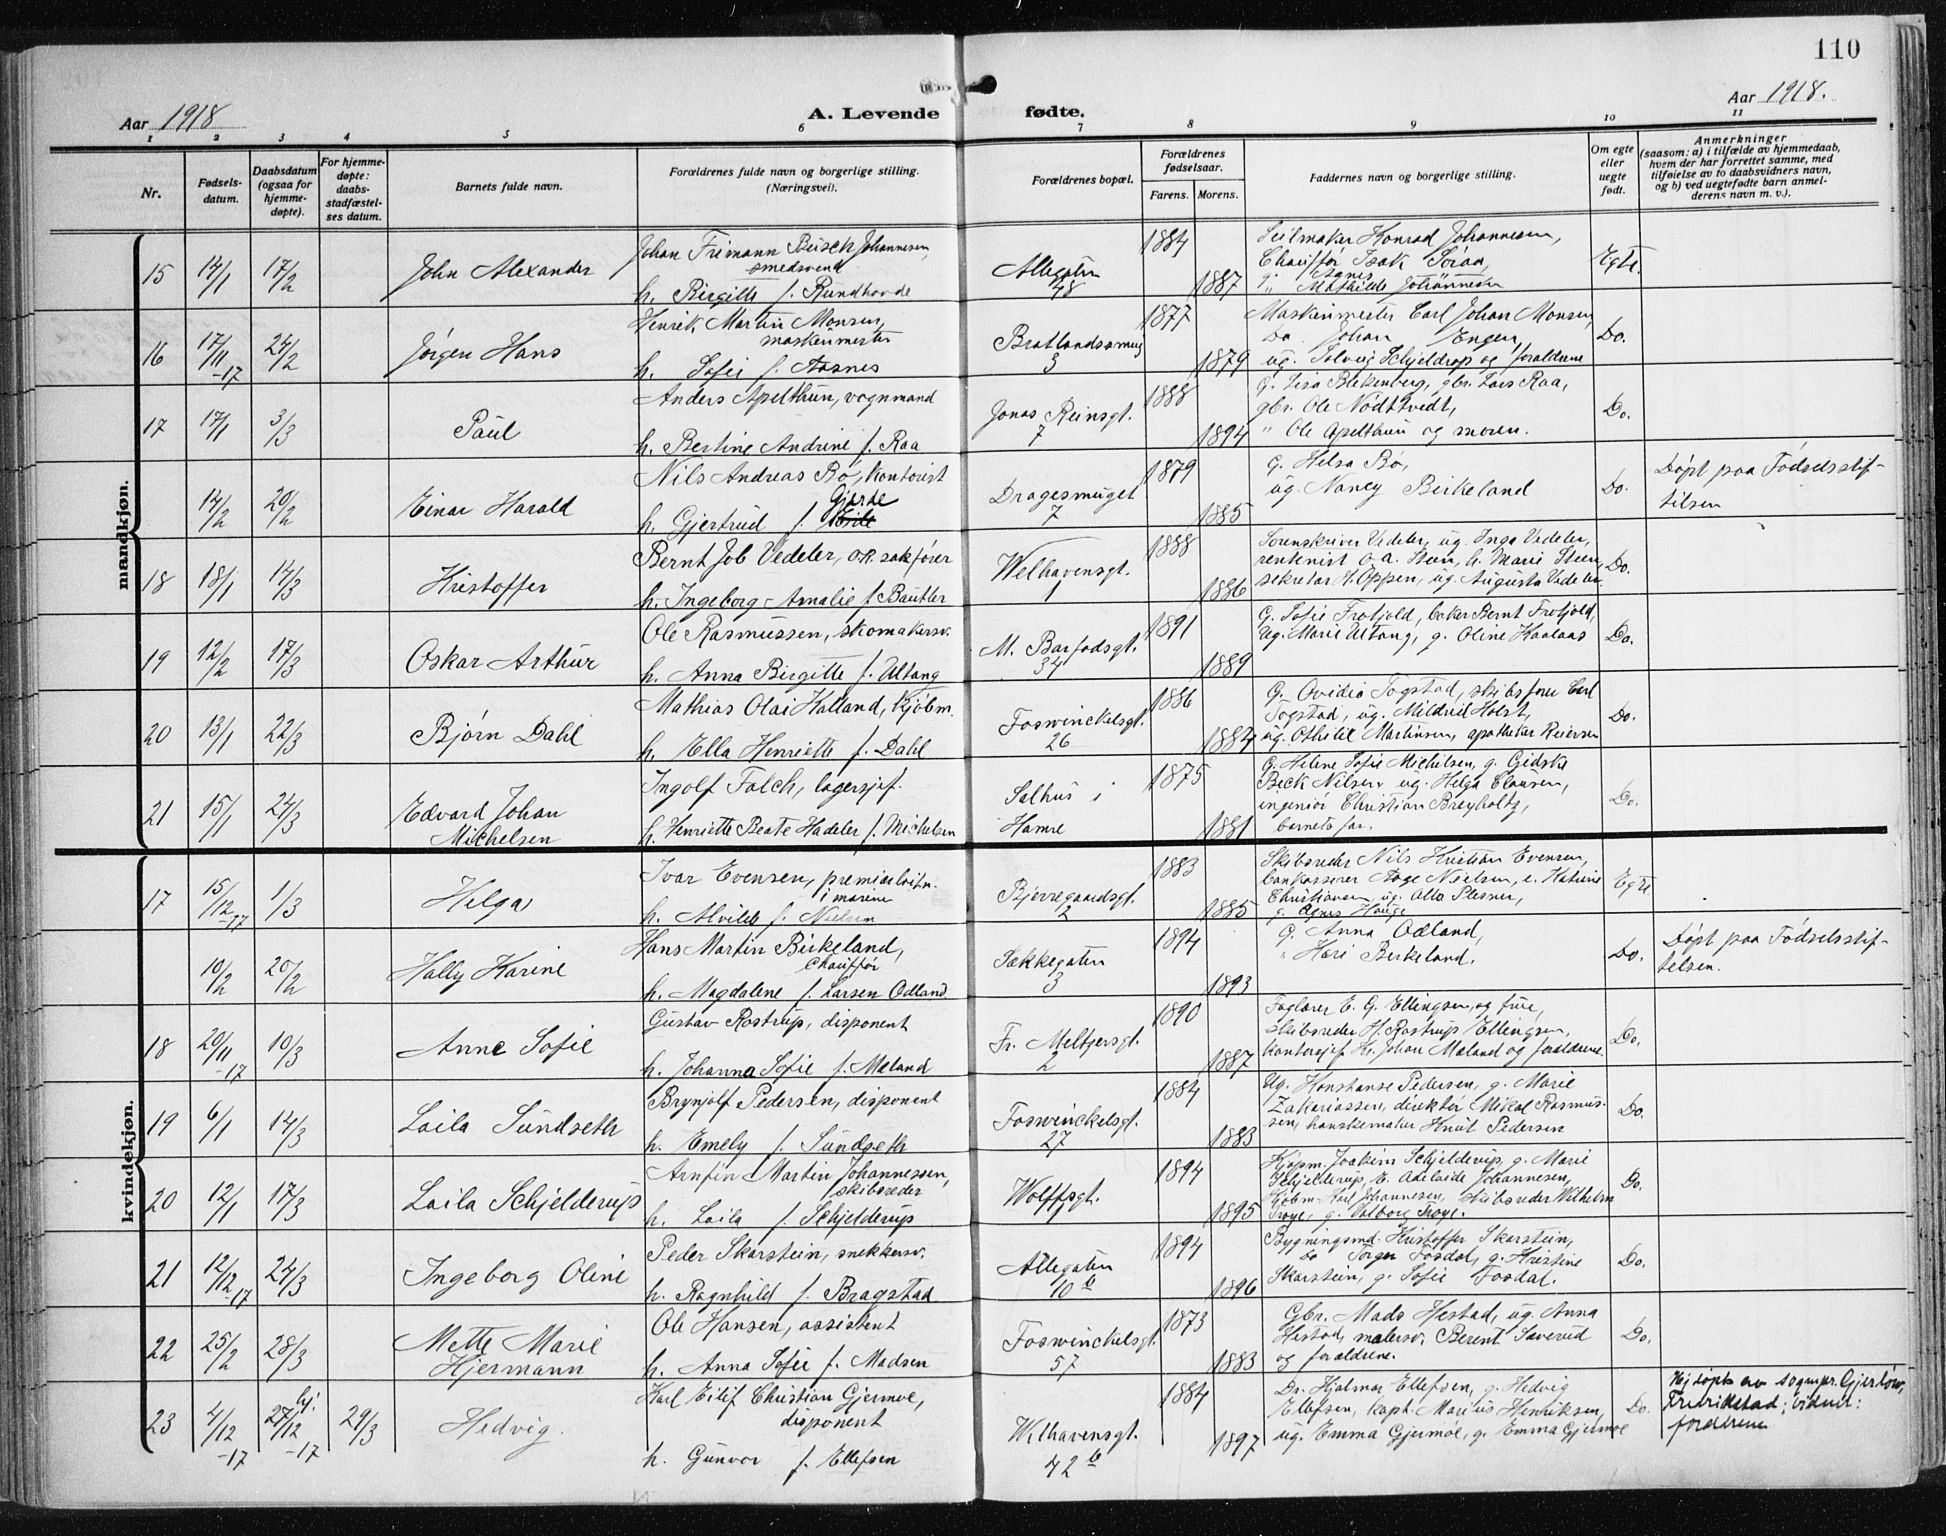 110
Aar 1918
A. Levende fødte.
Aar 1918.
1 2 3 4 5 6 7 8 9 10 11
Nr.
Fødsels-
datum.
Daabsdatum
(ogsaa for
hjemme-
døpte).
For hjemme-
døpte:
daabs-
stadfæstel-
ses datum.
Barnets fulde navn.
Forældrenes fulde navn og borgerlige stilling.
(Næringsvei).
Forældrenes bopæl.
Forældrenes
fødselsaar.
Farens. Morens.
Faddernes navn og borgerlige stilling.
Om egte
eller
uegte
født.
Anmerkninger
(saasom: a) i tilfælde av hjemmedaab,
hvem der har forrettet samme, med
tilføielse av to daabsvidners navn,
og b) ved uegtefødte barn anmel-
derens navn m. v.).
mandkjøn.
15 14/1 17/2 John Alexander
Johan Frimann Beisch Johannesen,
smedsvend
h. Birgitte f. Rundhovde
Allegaten
48
1884 1887
Seilmaker Konrad Johannesen,
Chauffør Isak Soraa,
g. Agnes
" Mathilde Johannesen
Egte.
16 17/11 -17 24/2 Jørgen Hans
Henrik Martin Monsen,
maskinmester
h. Sofie f. Aasnes
Bratlandssmug
3
1877 1879
Maskinmester Carl Johan Monsen,
Do Johan Engen,
ug. Solvig Schjeldrop og forældrene
Do.
17 17/1 3/3 Paul
Anders Apelthun, vognmand
h. Bertine Andrine f. Raa
Jonas Reinsgt.
7
1888 1894
g. Lisa Blekenberg, gbr. Lars Raa,
gbr. Ole Nødttvedt,
" Ole Apelthun og moren.
Do.
14/2 20/2 Einar Harald
Nils Andreas Bø, kontorist
h. Gjertrud f. Gjerde
Dragesmuget
7
1879 1885
g. Helga Bø,
ug. Nancy Birkeland
Do.
Døpt paa Fødselsstif-
telsen
18 18/1 14/3 Kristoffer
Bernt Job Vedeler, o.r. sakfører
h. Ingeborg Amalie f. Bautler
Welhavensgt.
1
1888 1886
Sorenskriver Vedeler, ug. Inga Vedeler,
rentenist O. A. Steen, h. Marie Steen,
sekretær H. Oppen, ug. Augusta Vedeler
Do.
19 12/2 17/3 Oskar Arthur
Ole Rasmussen, skomakersv.
h. Anna Birgitte f. Altang
M. Barfodsgt.
34
1891 1889
g. Sofie Frotjold, baker Bernt Frotjold,
ug. Marie Altang, g. Oline Haalaas
Do.
20 13/1 22/3 Bjørn Dahl
Mathias Olai Halland, kjøbm.
h. Ella Henriette f. Dahl
Foswinckelsgt.
26
1886 1884
g. Ovidia Togstad, skibsfører Carl
Togstad, ug. Mildrid Holst,
ug. Othilie Martinsen, apotheker Reiersen
Do.
21 15/1 24/3 Edvard Johan
Michelsen
Ingolf Falch, lagersjef.
h. Henriette Beate Hadeler f. Michelsen
Salhus i
Hamre
1875 1881
g. Helene Sofie Michelsen, g. Gidske
Beck Nilsen, ug. Helga Clausen,
ingeniør Christian Breyholtz,
barnets far.
Do.
kvindekjøn.
17 15/12 -17 1/3 Helga
Ivar Evensen, premierløitn.
i marine
h. Alvilde f. Nielsen
Bjerregaardsgt.
2
1883 1885
Skibsreder Nils Kristian Evensen,
bankkasserer Aage Nielsen, e. Katrine
Christiansen, ug. Alla Plesner,
g. Agnes Hauge
Egte.
10/2 20/2 Hally Karine
Hans Martin Birkeland,
Chauffør
h. Magdalene f. Larsen Odland
Sækkegaten
3
1894 1893
g. Anna Odland,
" Hari Berkeland.
Do.
Døpt paa Fødselsstif-
telsen.
18 20/11 -17 10/3 Anne Sofie
Gustav Rostrup, disponent
h. Johanna Sofie f. Mæland
Fr. Meltzersgt.
2
1890 1887
Faglærer E. G. Ellingsen og frue,
skibsreder H. Rostrup Ellingsen,
kontorsjef Kr. Johan Mæland og forældrene.
Do.
19 6/1 14/3 Laila Sundseth
Brynjolf Pedersen, disponent
h. Emely f. Sundseth
Foswinckelsgt.
27
1884 1883
ug. Konstanse Pedersen, g. Marie
Zakariassen, direktør Mikal Rasmus-
sen, hanskemaker Knut Pedersen
Do.
20 12/1 17/3 Laila Schjelderup
Arnfin Martin Johannessen,
skibsreder
h. Laila f. Schjelderup
Wolffsgt.
1894 1895
Kjøpm. Joakim Schjelderup, g. Marie
Schjelderup, E. Adelaide Johannesen,
kjøbm. Karl Johannesen, skibsreder Wilhelm
Troye, g. Valborg Troye.
Do.
21 12/12 -17 24/3 Ingeborg Oline
Peder Skarstein, snekkersv.
h. Ragnhild f. Bragstad
Allegaten
10 b
1894 1896
Bygningsmd. Kristoffer Skarstein,
Do Torger Fosdal, g. Kristine
Skarstein, g. Sofie Fosdal.
Do.
22 25/2 28/3 Mette Marie
Hjermann
Ole Hansen, assistent
h. Anna Sofie f. Madsen
Foswinckelsgt.
57
1873 1883
Gbr. Mads Hestad, ug. Anna
Hestad, malersv. Berent Saverud
og forældrene.
Do.
23 4/12 -17 hj. 27/12 -17 29/3 Hedvig.
Karl Eilif Christian Gjermoe,
disponent
h. Gunvor f. Ellefsen
Welhavensgt.
42 b
1884 1897
Dr. Hjalmar Ellefsen, g. Hedvig
Ellefsen, kapt. Marius Henriksen,
ug. Emma Gjermoe, g. Emma Gjermoe
Do.
Hj.døpt av sognepr. Gjerløw,
Fredrikstad; vidner:
forældrene